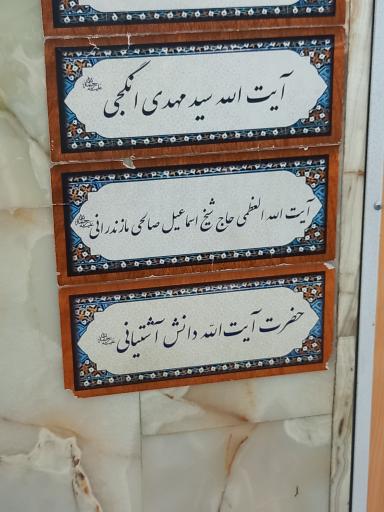 آیت الله سید مهدی انگجی
آیت الله العظمی حاج شیخ اسماعیل صالحی مازندرانی
حضرت آیت الله دانش آشتیانی